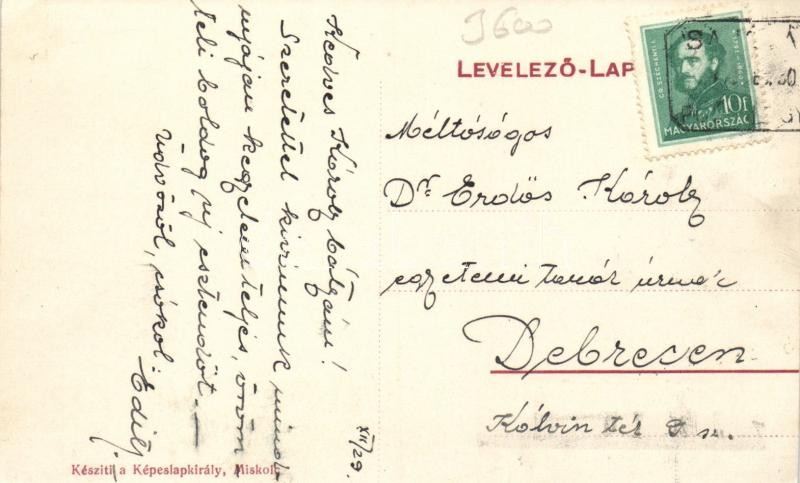 J600
LEVELEZŐ-LAP
GR. SZÉCHENYI I.
10f
MAGYARORSZÁG
Méltóságos
Dr. Erdős Károly
egyetemi tanár úrnak
Debrecen
Kálvin tér
Kedves Károly bátyám!
Szeretettel kivánunk mind-
nyájan kegyelemteljes, öröm
teli boldog új esztendőt. —
Üdvözöl, csókol:
Edith.
XII/29.
Késziti a Képeslapkirály, Miskolc